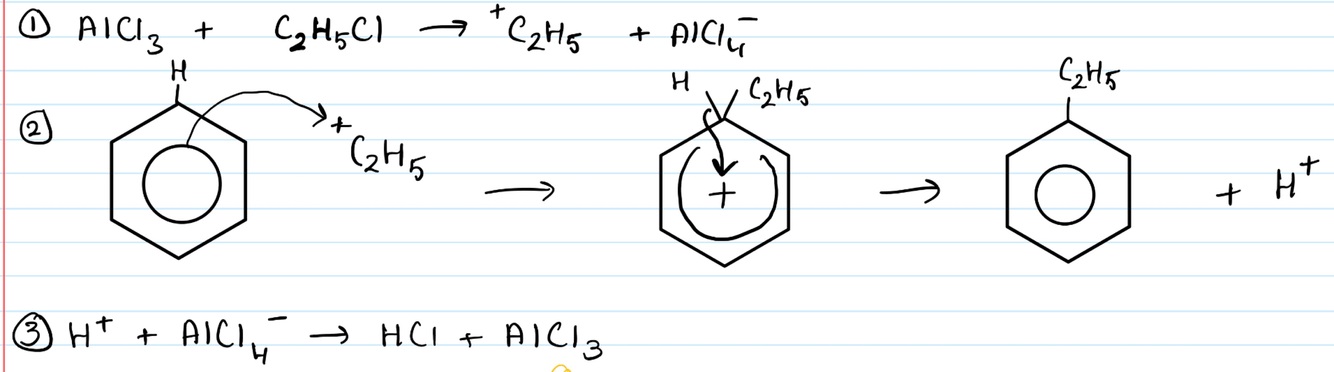 ① AlCl₃ + C₂H₅Cl → ⁺C₂H₅ + AlCl₄⁻
H H C₂H₅ C₂H₅
② ⁺C₂H₅ → + → + H⁺
③ H⁺ + AlCl₄⁻ → HCl + AlCl₃